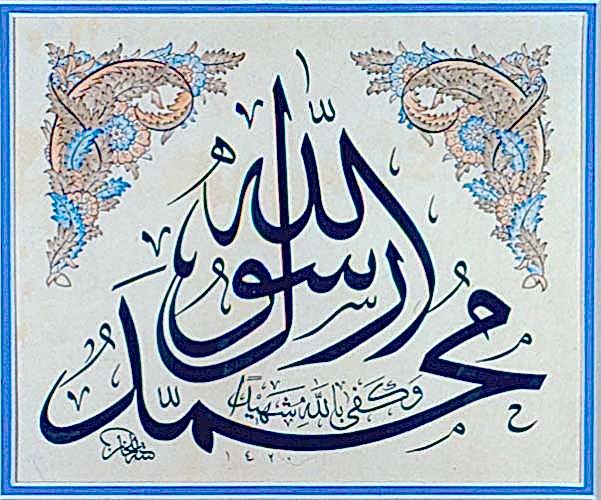 محمد رسول الله
وكفى بالله شهيدًا
١٤٢٠